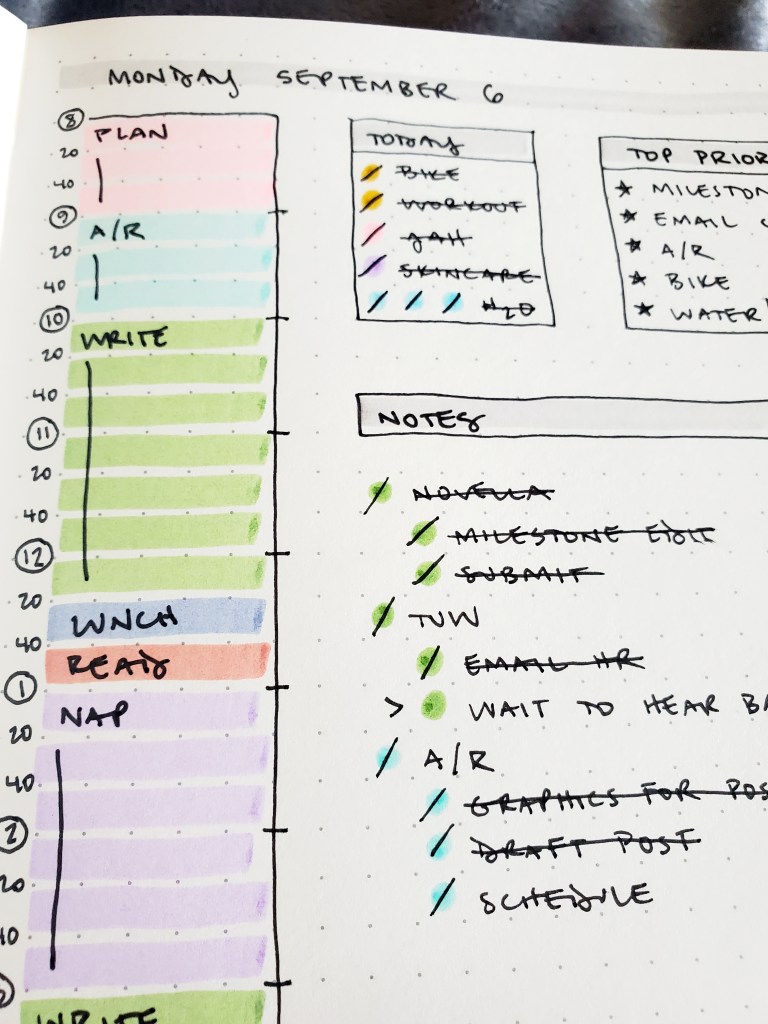 MONDAY SEPTEMBER 6
8
PLAN
20
40
9
A/R
20
40
10
WRITE
20
40
11
20
40
12
20
LUNCH
40
READ
1
NAP
20
40
2
20
40
WRITE
TODAY
BIKE
WORKOUT
JAH
SKINCARE
H2O
TOP PRIOR
★ MILESTON
★ EMAIL
★ A/R
★ BIKE
★ WATER
NOTES
NOVELLA
MILESTONE EDIT
SUBMIT
TUW
EMAIL HR
> WAIT TO HEAR BA
A/R
GRAPHICS FOR POS
DRAFT POST
SCHEDULE